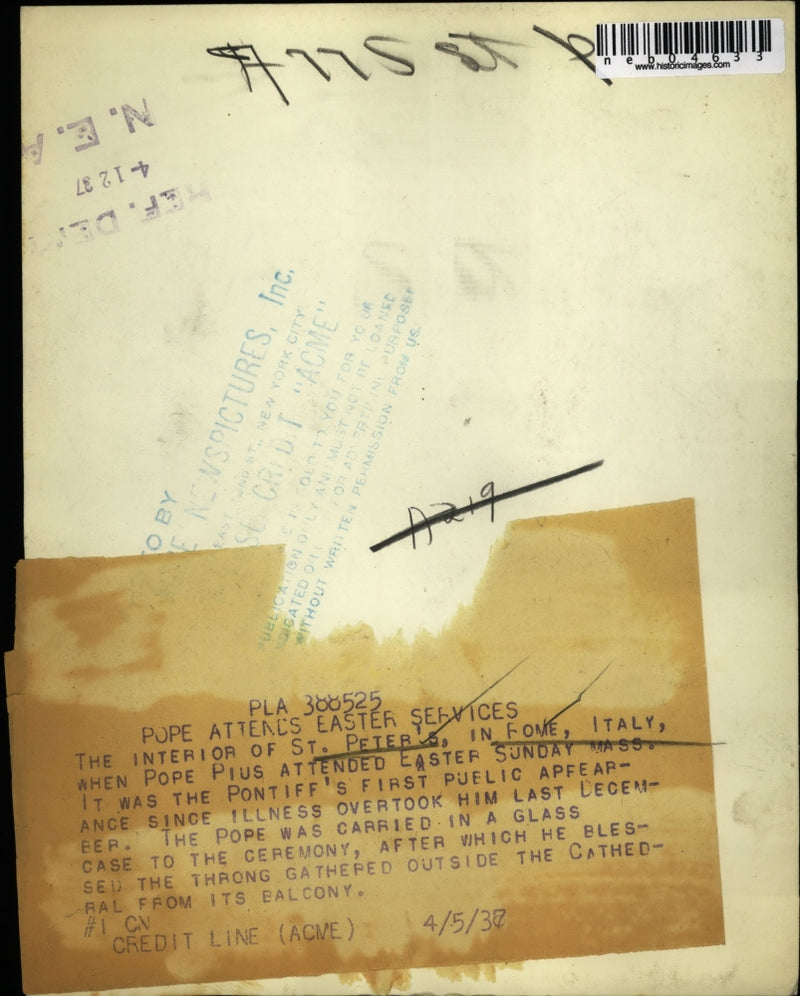 A 775 st p
neb04633
www.historicimages.com
N. E. A
4-12 37
REF. DE
TO BY
NEWSPICTURES, Inc.
EAST ND ST., NEW YORK CITY
CREDIT "ACME"
IS SOLD TO YOU FOR YOUR
PUBLICATION ONLY AND MUST NOT BE LOANED
FOR ADVERTISING PURPOSES
WITHOUT WRITTEN PERMISSION FROM US.
A219
PLA 388525
POPE ATTENDS EASTER SERVICES
THE INTERIOR OF ST. PETER'S, IN ROME, ITALY,
WHEN POPE PIUS ATTENDED EASTER SUNDAY MASS.
IT WAS THE PONTIFF'S FIRST PUBLIC APPEAR-
ANCE SINCE ILLNESS OVERTOOK HIM LAST DECEM-
BER. THE POPE WAS CARRIED IN A GLASS
CASE TO THE CEREMONY, AFTER WHICH HE BLES-
SED THE THRONG GATHERED OUTSIDE THE CATHED-
RAL FROM ITS BALCONY.
#1 CN
CREDIT LINE (ACME) 4/5/37